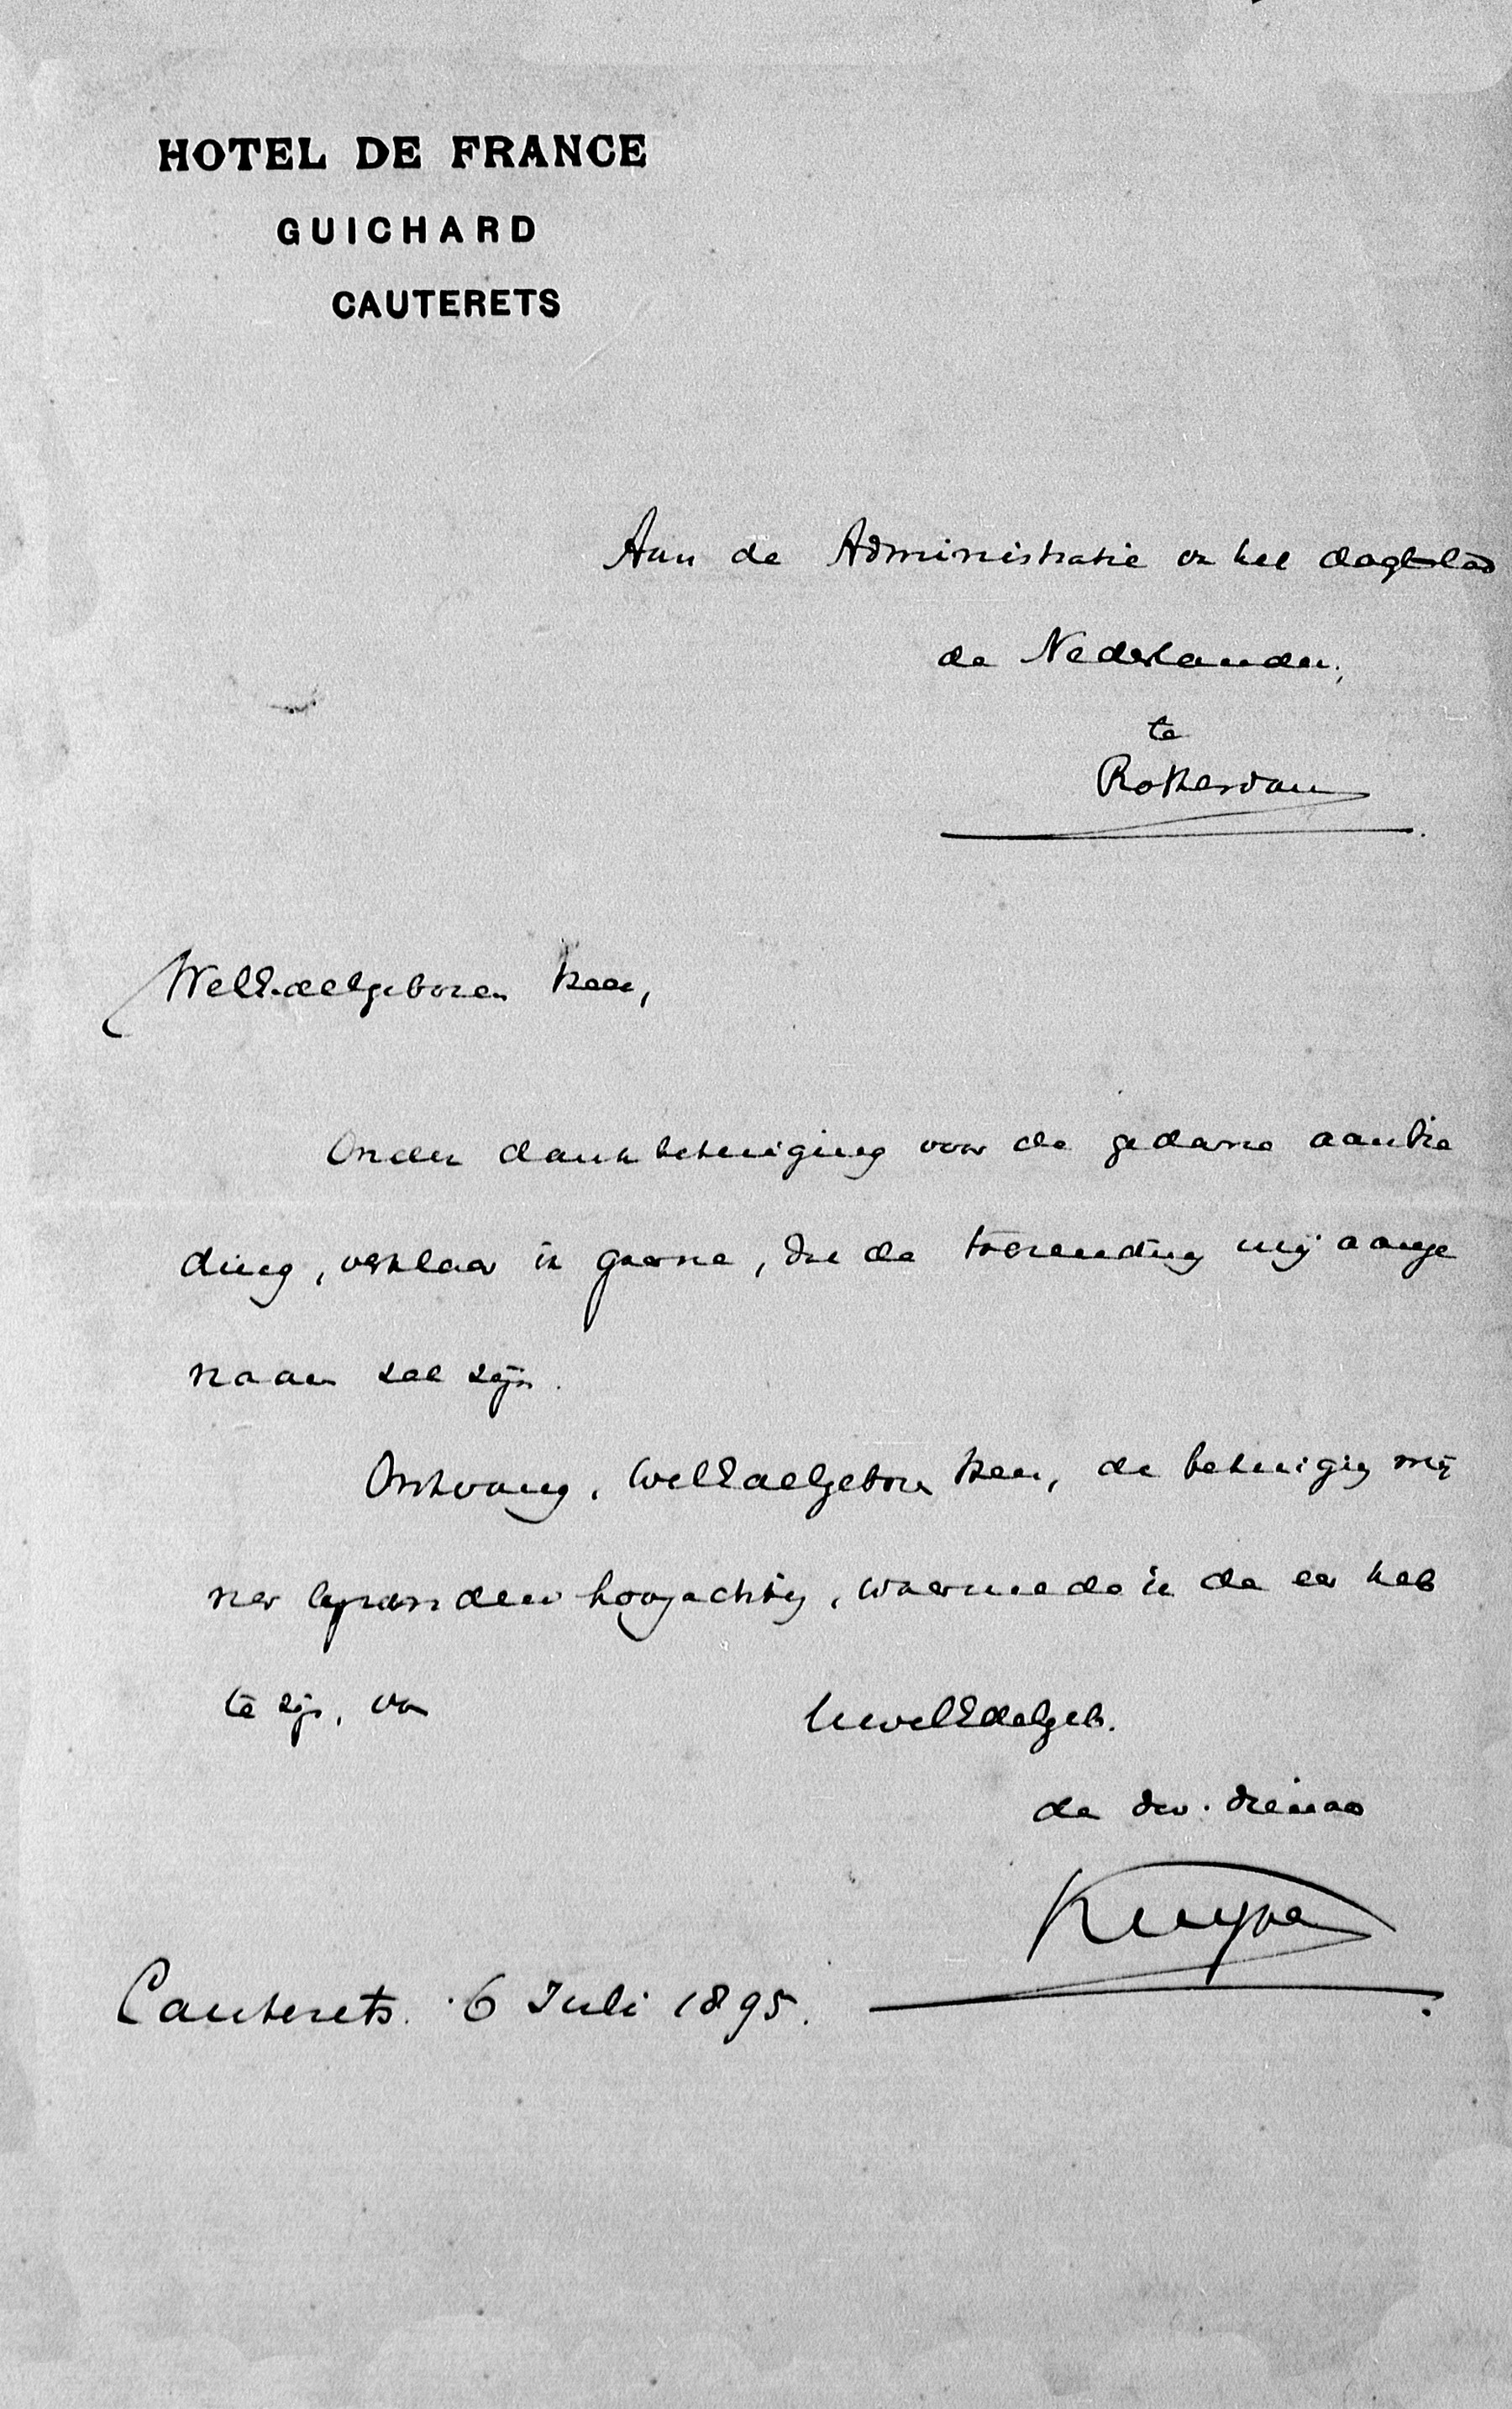 HOTEL DE FRANCE
GUICHARD
CAUTERETS
Aan de Administratie van het dagblad
de Nederlander,
te
Rotterdam
WelEdelgeboren Heer,
Onder dankbetuiging voor de gedane aanbie
ding, verklaar ik gaarne, dat de toezending mij aange
naam zal zijn.
Ontvang, WelEdelgeboren Heer, de betuiging mij
ner hoogachting, waarmede ik de eer heb
te zijn, van
UwelEdelgeb.
de dw. dienaar
Kuyper
Cauterets. 6 Juli 1895.